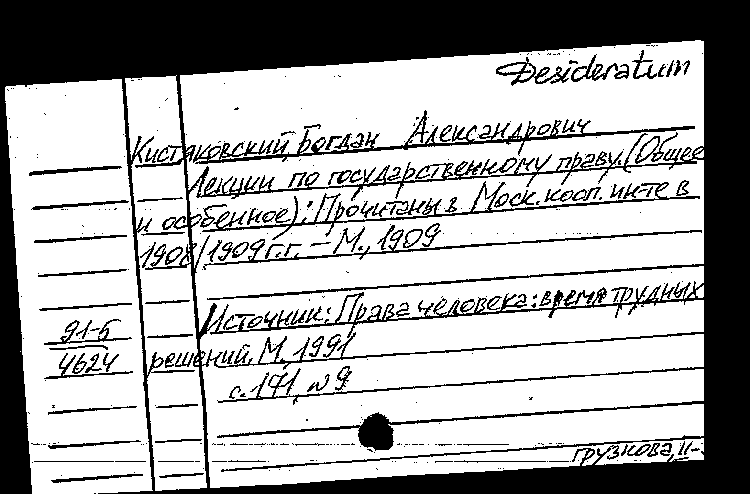 Desideratum
Кистяковский, Богдан Александрович
Лекции по государственному праву. (Общее
и особенное): Прочитаны в Моск. косп. инте в
1908/1909 г.г. – М., 1909
Источник: Права человека: время трудных
91-5
4624
решений. М. 1991
с. 171, №9
грузкова, II-